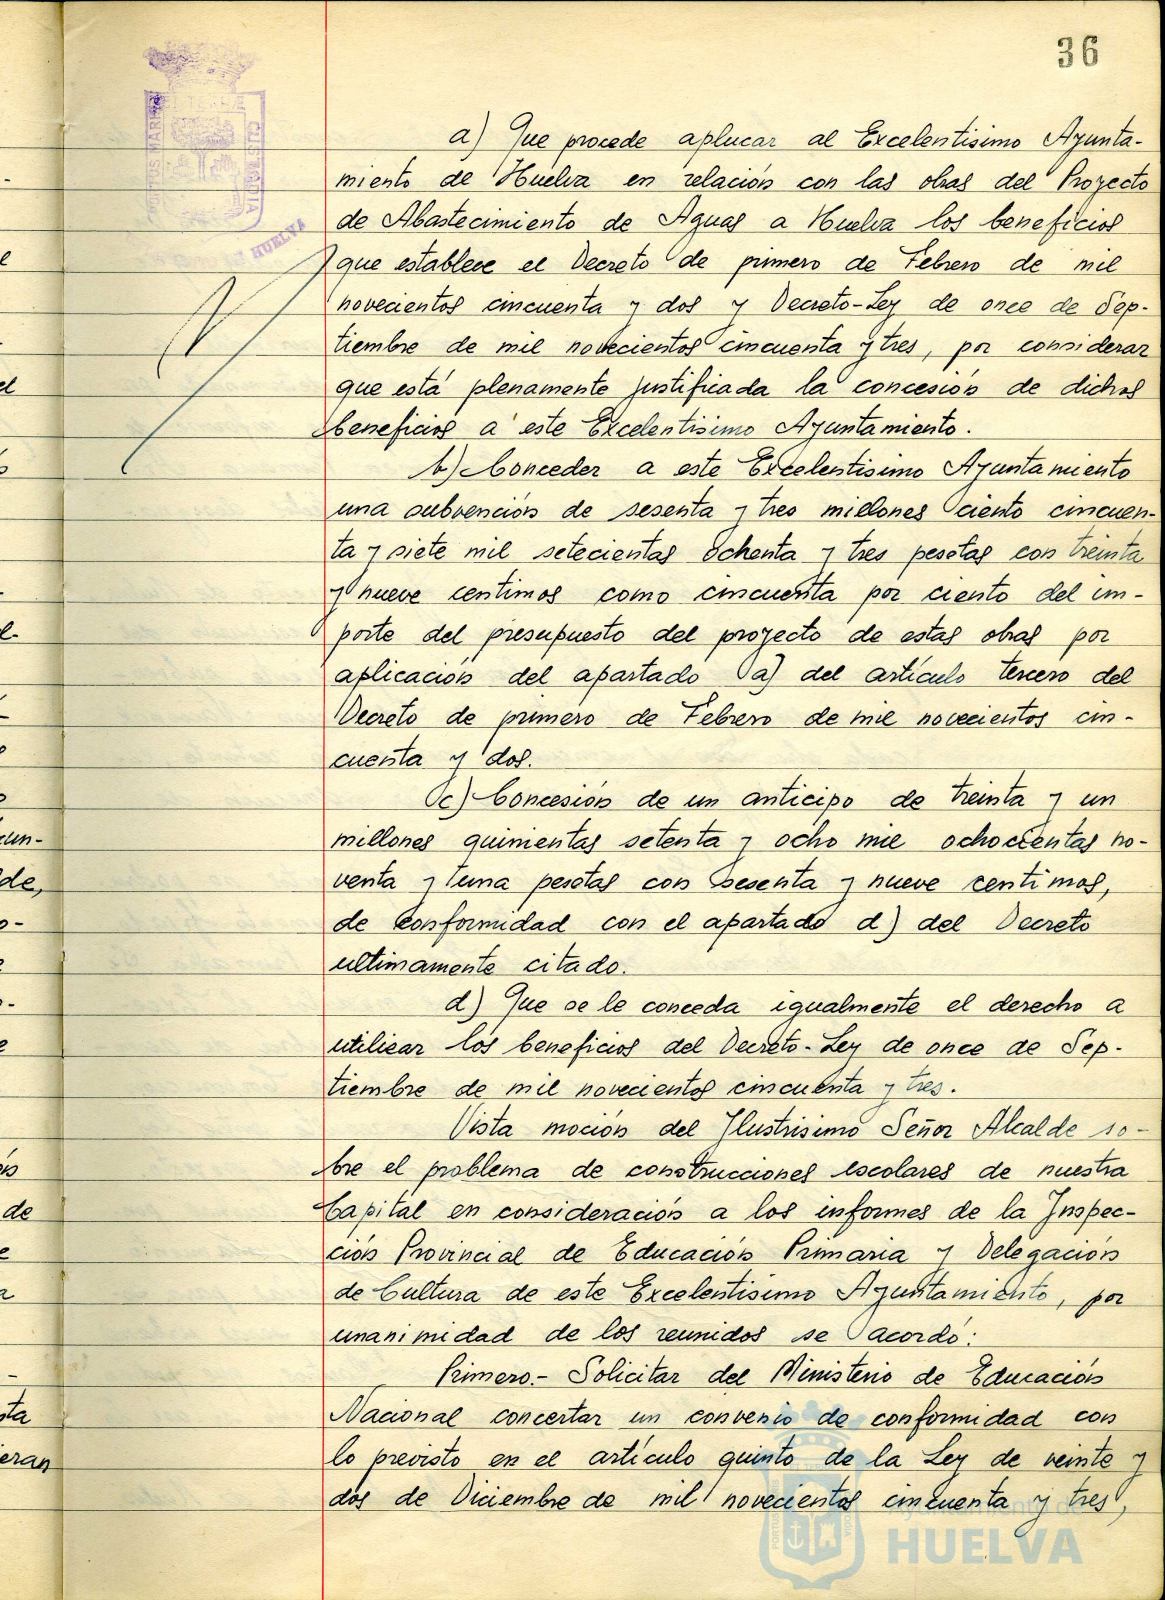 36
a) Que procede aplucar al Excelentisimo Ayunta-
miento de Huelva en relación con las obras del Proyecto
de Abastecimiento de Aguas a Huelva los beneficios
que establece el Decreto de primero de Febrero de mil
novecientos cincuenta y dos y Decreto-Ley de once de Sep-
tiembre de mil novecientos cincuenta y tres, por considerar
que está plenamente justificada la concesión de dichos
beneficios a este Excelentisimo Ayuntamiento.
b) Conceder a este Excelentisimo Ayuntamiento
una subvención de sesenta y tres millones ciento cincuen-
ta y siete mil setecientas ochenta y tres pesetas con treinta
y nueve centimos como cincuenta por ciento del im-
porte del presupuesto del proyecto de estas obras por
aplicación del apartado a) del artículo tercero del
Decreto de primero de Febrero de mil novecientos cin-
cuenta y dos.
c) Concesión de un anticipo de treinta y un
millones quinientas setenta y ocho mil ochocientas no-
venta y una pesetas con sesenta y nueve centimos,
de conformidad con el apartado d) del Decreto
ultimamente citado.
d) Que se le conceda igualmente el derecho a
utilizar los beneficios del Decreto-Ley de once de Sep-
tiembre de mil novecientos cincuenta y tres.
Vista moción del Ilustrisimo Señor Alcalde so-
bre el problema de construcciones escolares de nuestra
Capital en consideración a los informes de la Inspec-
ción Provincial de Educación Primaria y Delegación
de Cultura de este Excelentisimo Ayuntamiento, por
unanimidad de los reunidos se acordó:
Primero.- Solicitar del Ministerio de Educación
Nacional concertar un convenio de conformidad con
lo previsto en el artículo quinto de la Ley de veinte y
dos de Diciembre de mil novecientos cincuenta y tres,
Ayuntamiento de
HUELVA